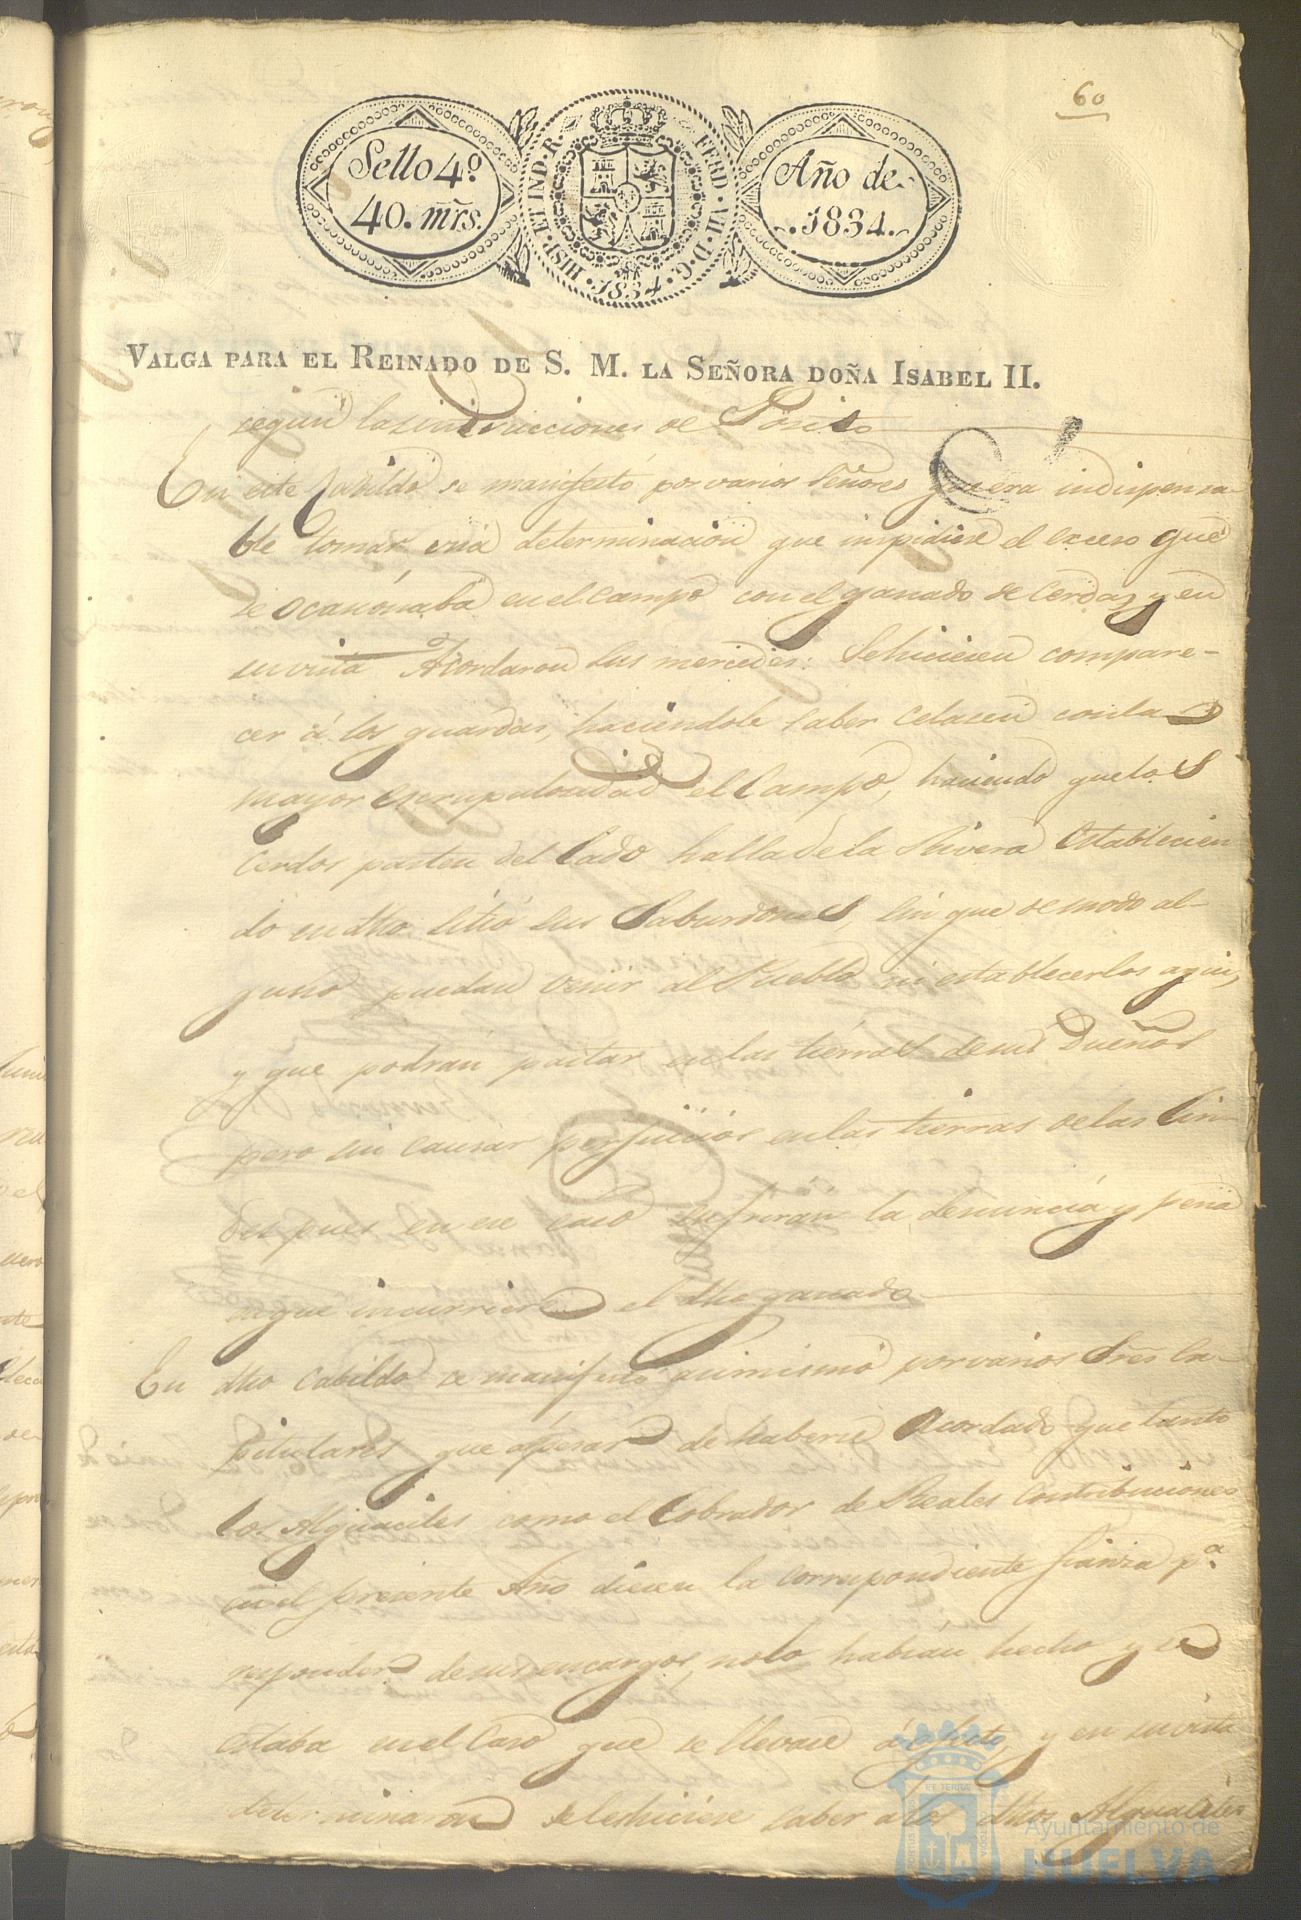 60
Sello 4º
40. mrs.
HISP. ET IND. R.
FERD. VII. D. G.
1834.
Año de
1834.
VALGA PARA EL REINADO DE S. M. LA SEÑORA DOÑA ISABEL II.
segun las instrucciones de Posito
En este Cabildo se manifestó por varios Señores q.e era indispensa-
ble tomar una determinacion que impidiese el exceso que
se ocacionaba en el campo con el ganado de Cerda, y en
su vista Acordaron sus mercedes: Se hiciesen compare-
cer á los guardas, haciendole saber celasen con la
mayor escrupulosidad el Campo, haciendo que los
Cerdos pasten del lado halla de la Rivera establecien
do en dho sitio sus Saburdones, sin que de modo al-
guno puedan venir al Pueblo ni establecerlos aqui,
y que podrán pastar en las tierras de sus Dueños
pero sin causar perjuicios en las tierras de las Lin-
des pues en ese caso sufriran la denuncia y pena
en que incurriere el dho ganado
En dho Cabildo se manifestó asimismo por varios Sres Ca-
pitulares que apesar de haberse Acordado que tanto
los Alguaciles como el Cobrador de Reales Contribuciones
en el presente Año diesen la correspondiente fianza p.a
responder de sus encargos, no lo habian hecho y se
estaba en el Caso que se llevase á efecto, y en su vista
determinaron se les hiciese saber a los dhos Alguaciles
Ayuntamiento de
HUELVA